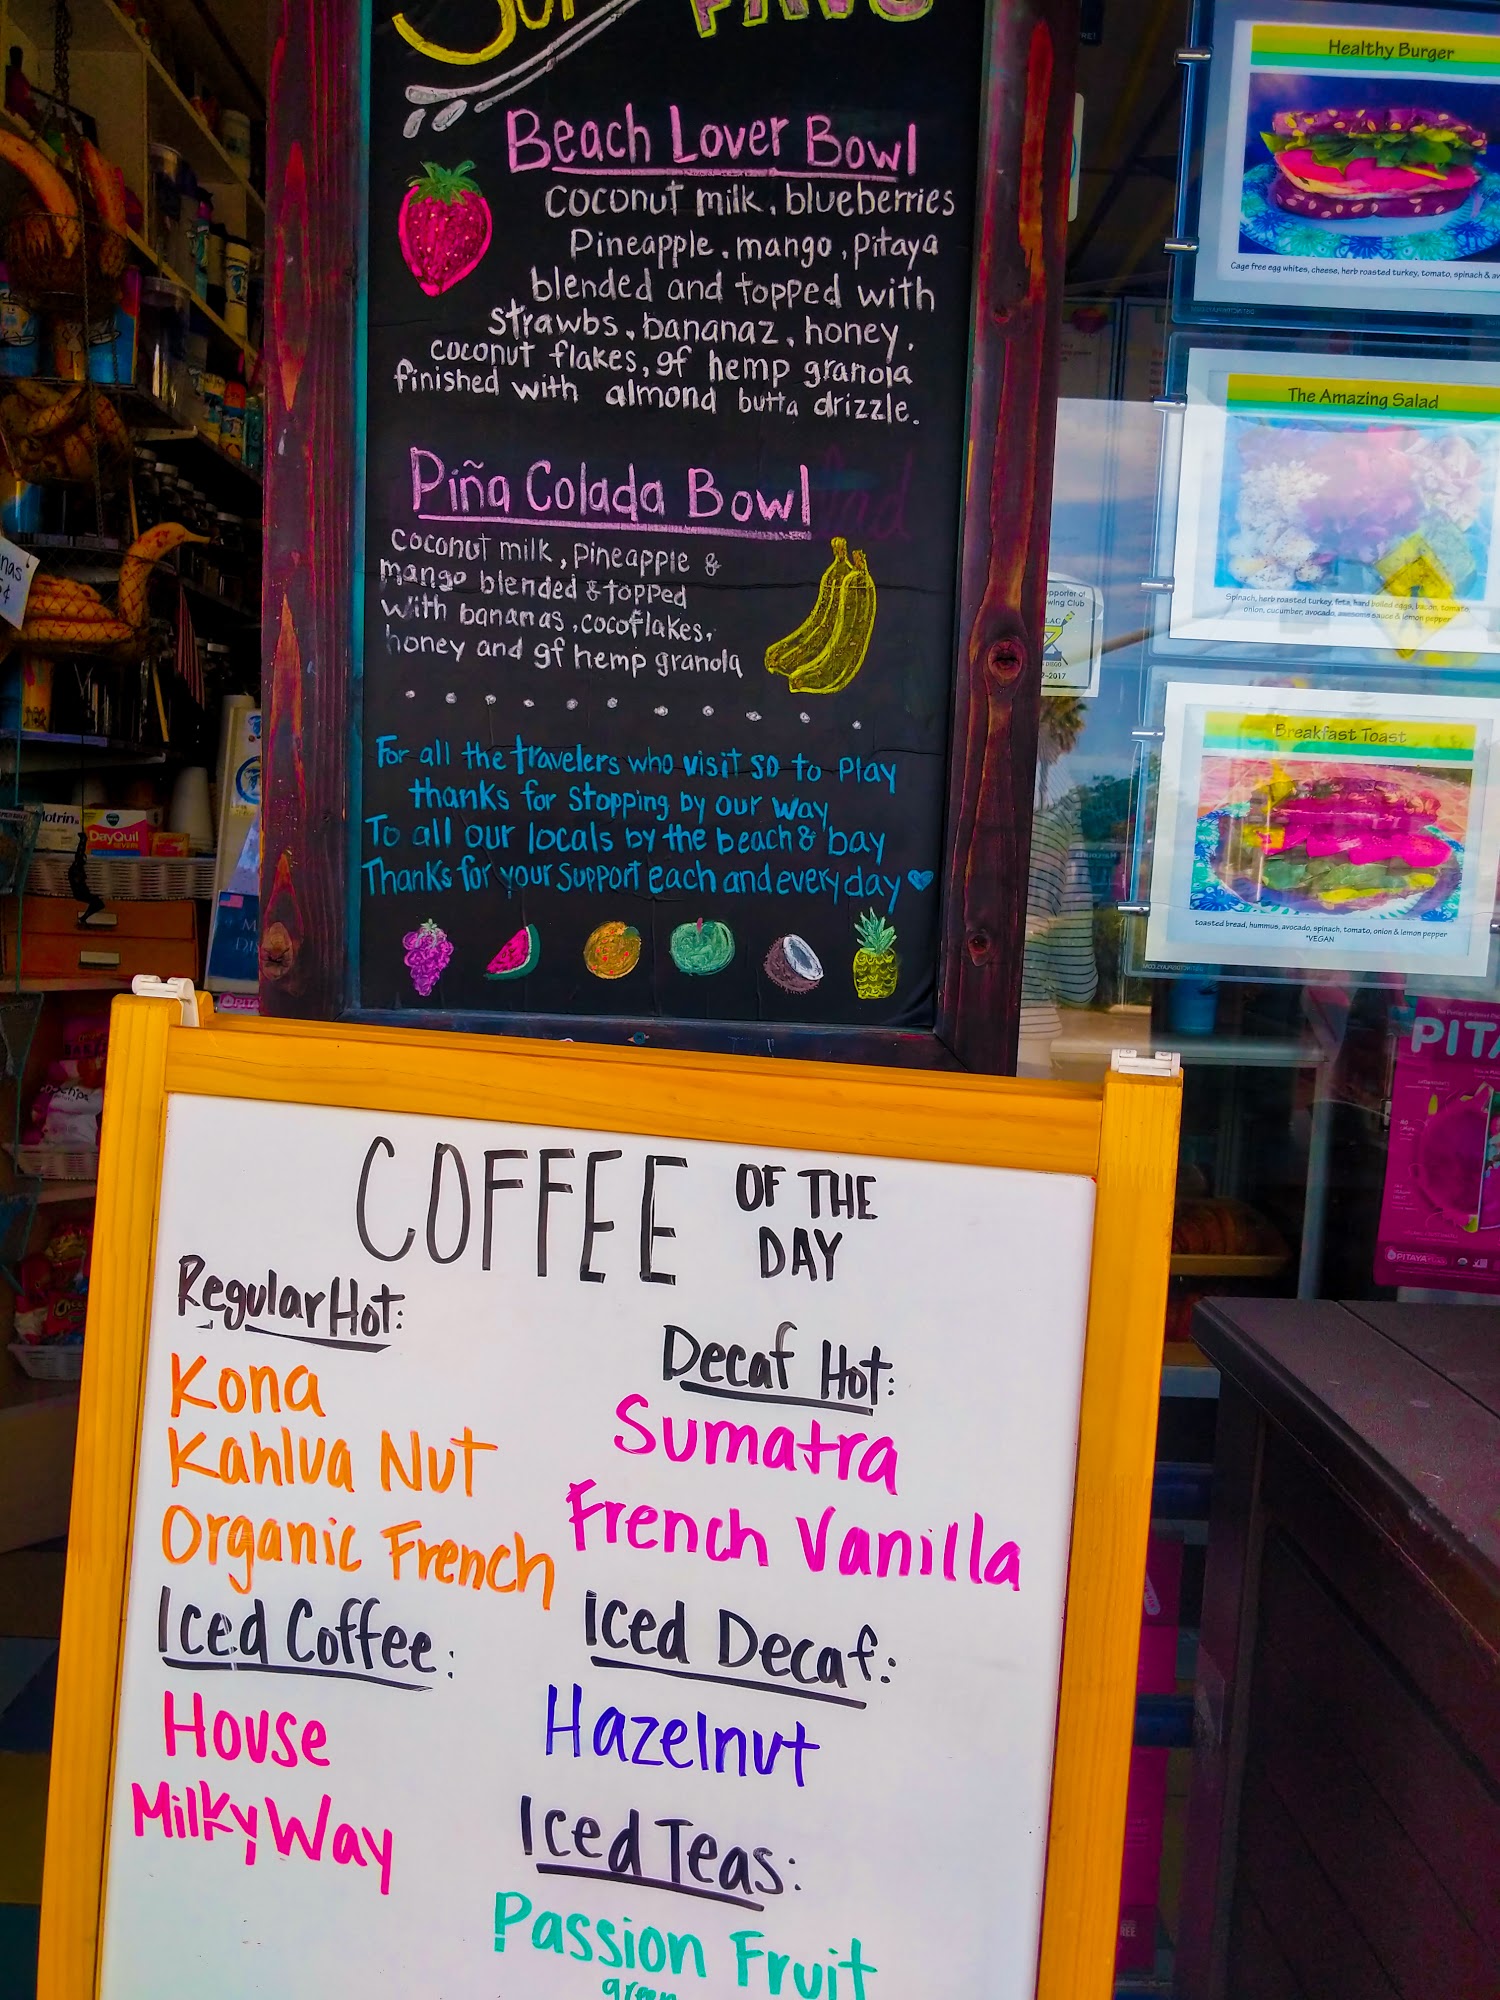 Beach Lover Bowl
coconut milk, blueberries
Pineapple, mango, pitaya
blended and topped with
strawbs, bananaz, honey,
coconut flakes, gf hemp granola
finished with almond butta drizzle.
Piña Colada Bowl
coconut milk, pineapple &
mango blended & topped
with bananas, cocoflakes,
honey and gf hemp granola
For all the travelers who visit SD to play
thanks for stopping by our way
To all our locals by the beach & bay
Thanks for your support each and every day
COFFEE OF THE
DAY
Regular Hot:
Kona
Kahlua Nut
Organic French
Iced Coffee:
House
Milky Way
Decaf Hot:
Sumatra
French Vanilla
Iced Decaf:
Hazelnut
Iced Teas:
Passion Fruit
green
Healthy Burger
Cage free egg whites, cheese, herb roasted turkey, tomato, spinach & av
The Amazing Salad
Spinach, herb roasted turkey, feta, hard boiled eggs, bacon, tomato,
onion, cucumber, avocado, awesome sauce & lemon pepper
Breakfast Toast
toasted bread, hummus, avocado, spinach, tomato, onion & lemon pepper
*VEGAN
PITA
DayQuil